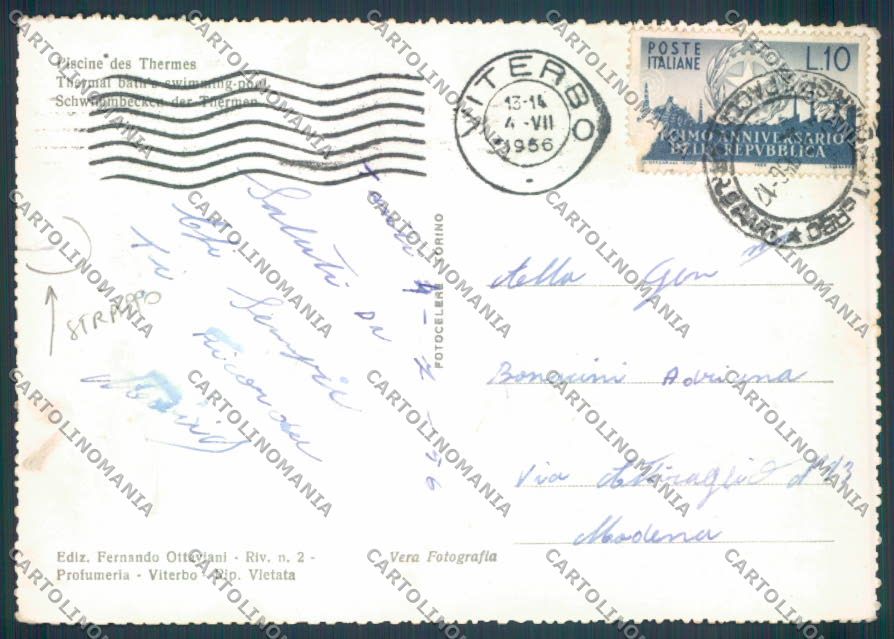 Piscine des Thermes
Thermal bath's swimming-pool
Schwimmbecken der Thermen
VITERBO
13-14
4 -VII
1956
POSTE
ITALIANE
L.10
DECIMO ANNIVERSARIO
DELLA REPVBBLICA
4 - 7 - 56
Saluti da
chi sempre
ti ricorda
STRAPPO
FOTOCELERE TORINO
Alla Gen
Bonacini Adriana
Via
Modena
Ediz. Fernando Ottaviani - Riv. n. 2 -
Profumeria - Viterbo - Rip. Vietata
Vera Fotografia
CARTOLINOMANIA